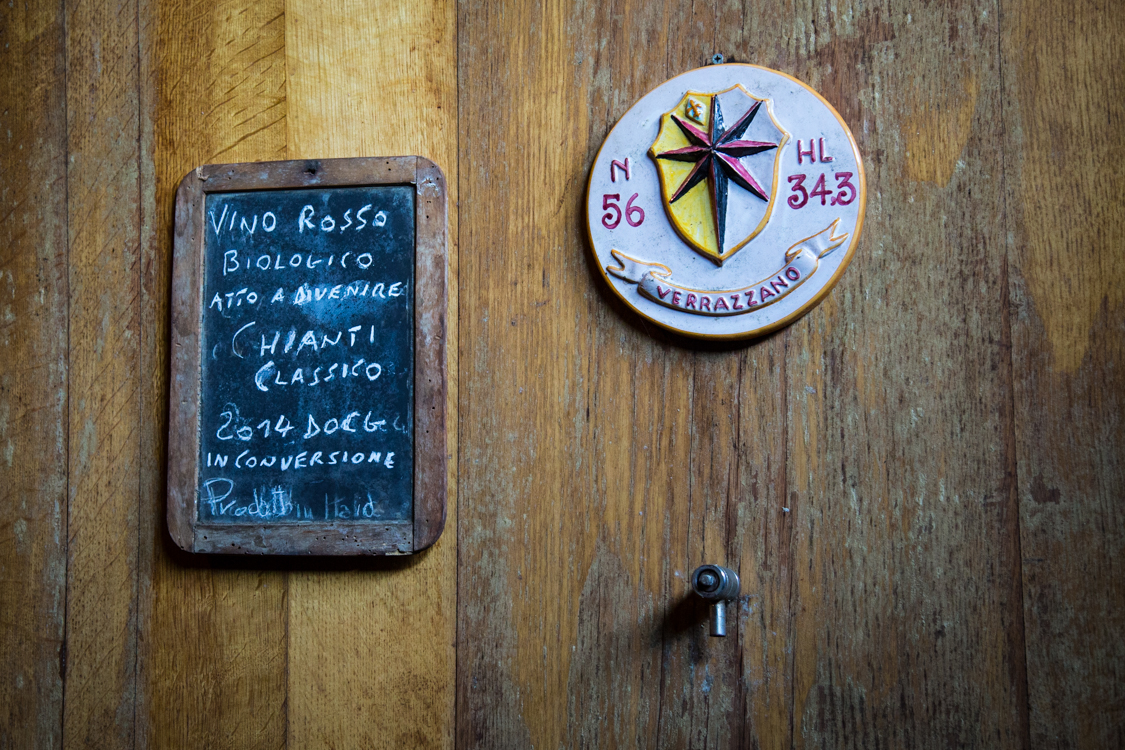 VINO ROSSO
BIOLOGICO
ATTO A DIVENIRE
CHIANTI
CLASSICO
2014 DOCG
IN CONVERSIONE
Prodotto in Italia
N
56
HL
34,3
VERRAZZANO